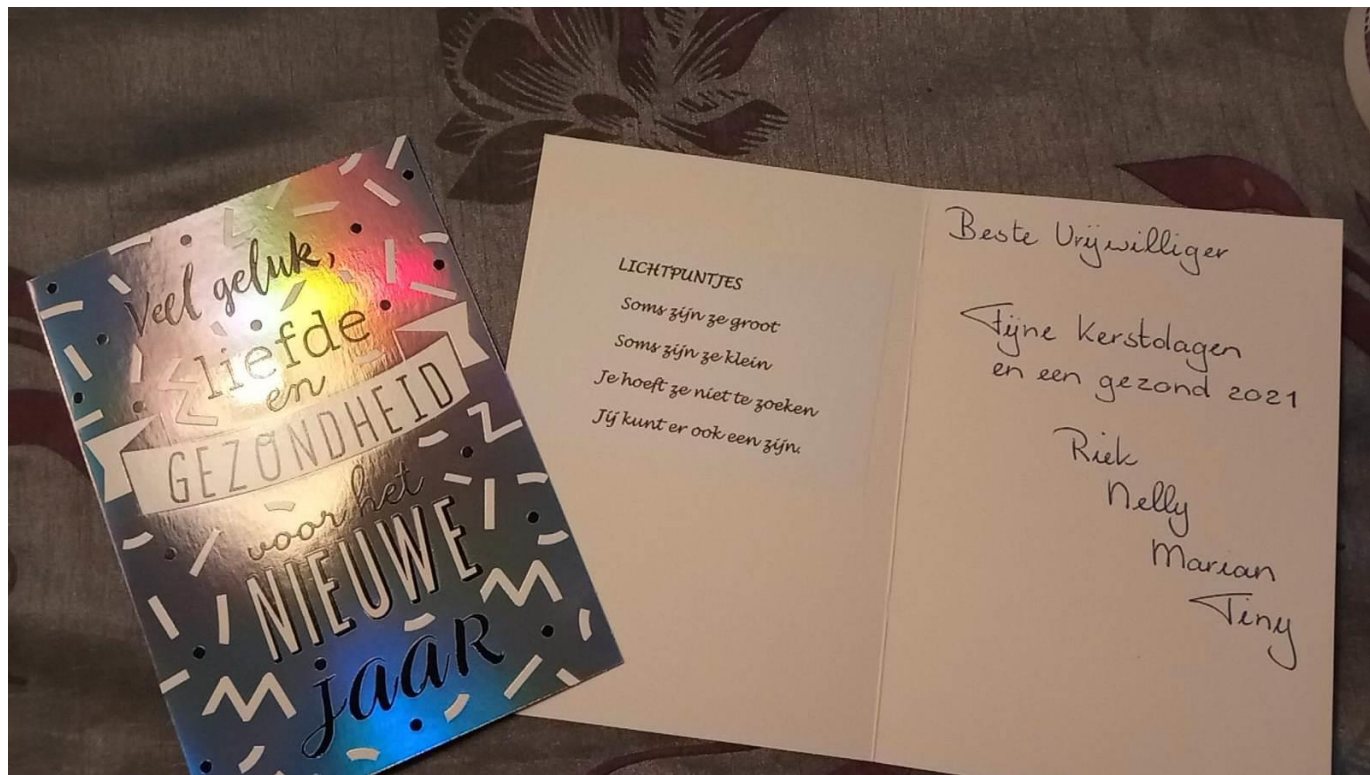 Veel geluk,
liefde
en
GEZONDHEID
voor het
NIEUWE
jaar
LICHTPUNTJES
Soms zijn ze groot
Soms zijn ze klein
Je hoeft ze niet te zoeken
Jij kunt er ook een zijn.
Beste Vrijwilliger
Fijne Kerstdagen
en een gezond 2021
Riek
Nelly
Marian
Tiny